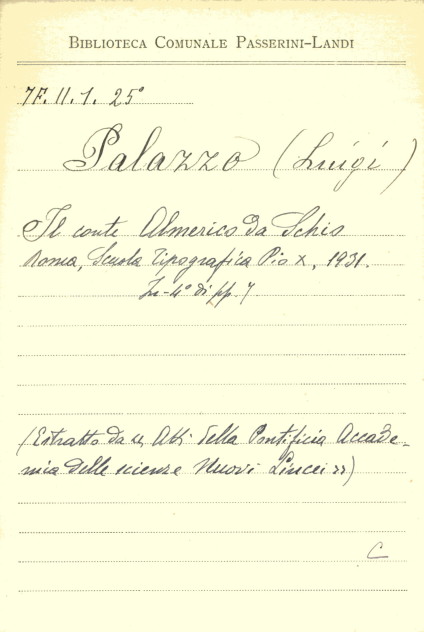 BIBLIOTECA COMUNALE PASSERINI-LANDI
7F.II.1. 25°
Palazzo (Luigi)
Il conte Almerico da Schio
Roma, Scuola Tipografica Pio X, 1931.
In-4° di pp. 7
(Estratto da "Atti della Pontificia Accade-
mia delle scienze Nuovi Lincei")
C